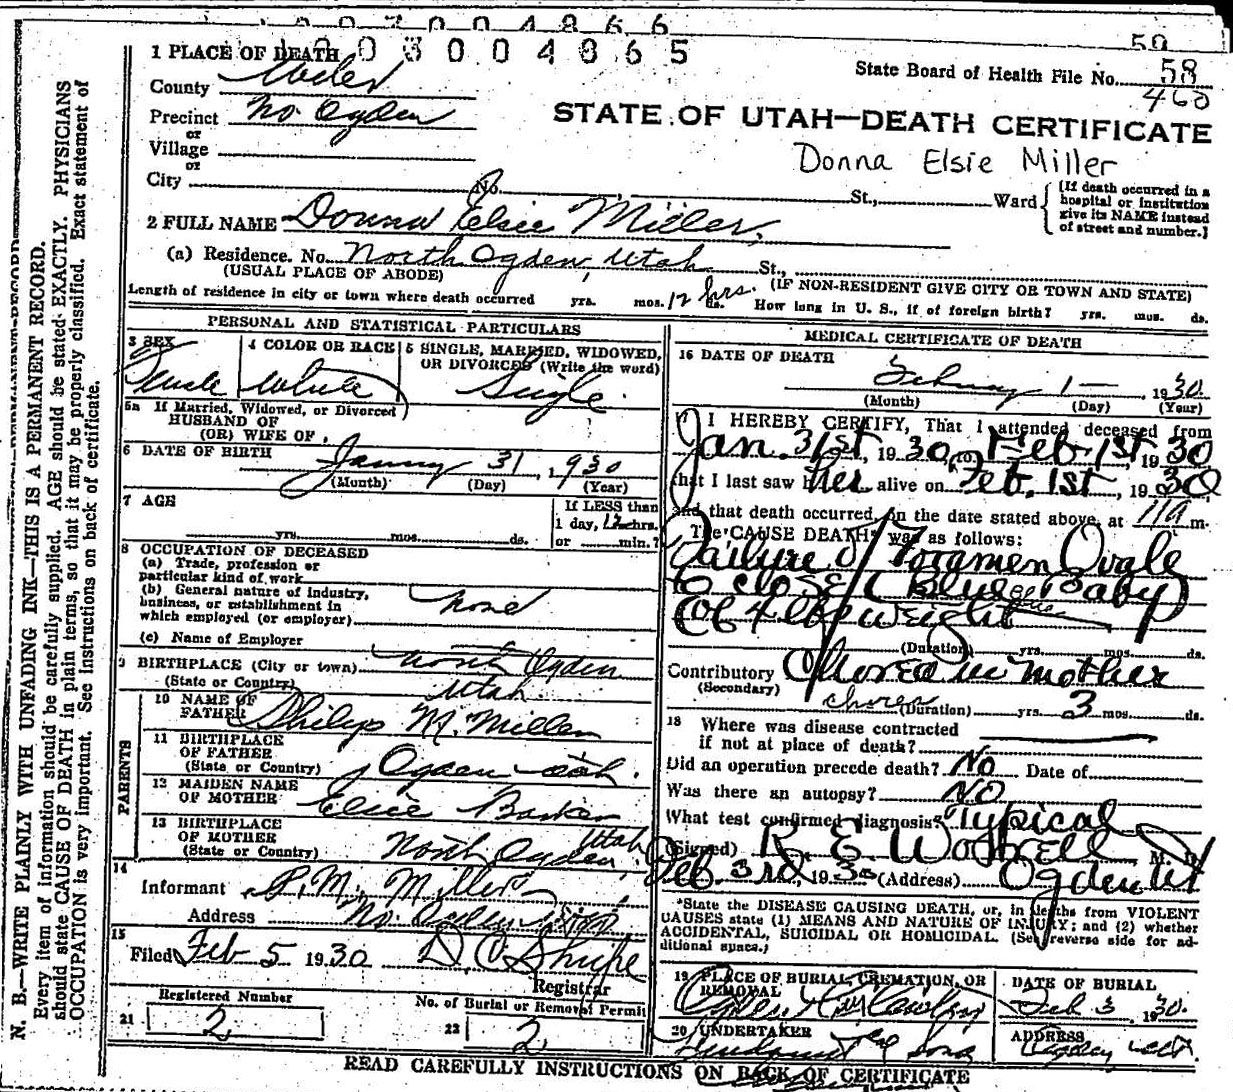 1 PLACE OF DEATH
1003004865
50
County Weber
State Board of Health File No. 58
460
Precinct No. Ogden
or
Village
or
City No. St., Ward
STATE OF UTAH—DEATH CERTIFICATE
Donna Elsie Miller
[If death occurred in a
hospital or institution
give its NAME instead
of street and number.]
2 FULL NAME Donna Elsie Miller
(a) Residence. No. North Ogden, Utah St.,
(USUAL PLACE OF ABODE)
(IF NON-RESIDENT GIVE CITY OR TOWN AND STATE)
Length of residence in city or town where death occurred yrs. mos. 12 hrs. ds. How long in U. S., if of foreign birth? yrs. mos. ds.
PERSONAL AND STATISTICAL PARTICULARS
3 SEX
Female
4 COLOR OR RACE
White
5 SINGLE, MARRIED, WIDOWED,
OR DIVORCED (Write the word)
Single
5a If Married, Widowed, or Divorced
HUSBAND OF
(OR) WIFE OF
6 DATE OF BIRTH
January 31, 1930
(Month) (Day) (Year)
7 AGE
yrs. mos. ds.
If LESS than
1 day, 12 hrs.
or min.?
8 OCCUPATION OF DECEASED
(a) Trade, profession or
particular kind of work
(b) General nature of industry,
business, or establishment in
which employed (or employer)
None
(c) Name of Employer
9 BIRTHPLACE (City or town) North Ogden
(State or Country) Utah
PARENTS
10 NAME OF
FATHER Philip M. Miller
11 BIRTHPLACE
OF FATHER
(State or Country) Ogden Utah.
12 MAIDEN NAME
OF MOTHER Elsie Barker
13 BIRTHPLACE
OF MOTHER
(State or Country) North Ogden, Utah
14
Informant P. M. Miller
Address No. Ogden
15
Filed Feb 5 1930 D C Shupe
Registrar
Registered Number
21 2
No. of Burial or Removal Permit
22 2
MEDICAL CERTIFICATE OF DEATH
16 DATE OF DEATH
February 1— 1930.
(Month) (Day) (Year)
17 I HEREBY CERTIFY, That I attended deceased from
Jan. 31st, 1930, to Feb. 1st, 1930
that I last saw her alive on Feb. 1st, 1930,
and that death occurred, on the date stated above, at 11a m.
The CAUSE DEATH* was as follows:
Failure of Foramen Ovale
to close (Blue Baby)
of 4 lbs weight
(Duration) yrs. mos. ds.
Contributory Chorea in mother
(Secondary)
chorea (Duration) yrs. 3 mos. ds.
18 Where was disease contracted
if not at place of death?
Did an operation precede death? No Date of
Was there an autopsy? No
What test confirmed diagnosis? Typical
(Signed) R. E. Worrell, M. D.
Feb. 3rd, 1930 (Address) Ogden Ut
*State the DISEASE CAUSING DEATH, or, in deaths from VIOLENT
CAUSES state (1) MEANS AND NATURE OF INJURY; and (2) whether
ACCIDENTAL, SUICIDAL OR HOMICIDAL. (See reverse side for ad-
ditional space.)
19 PLACE OF BURIAL, CREMATION, OR
REMOVAL
Ogden City Cemetery
DATE OF BURIAL
Feb 3 1930.
20 UNDERTAKER
& Sons
ADDRESS
Ogden Utah
READ CAREFULLY INSTRUCTIONS ON BACK OF CERTIFICATE
N. B.—WRITE PLAINLY WITH UNFADING INK—THIS IS A PERMANENT RECORD.
Every item of information should be carefully supplied. AGE should be stated EXACTLY. PHYSICIANS
should state CAUSE OF DEATH in plain terms, so that it may be properly classified. Exact statement of
OCCUPATION is very important. See instructions on back of certificate.